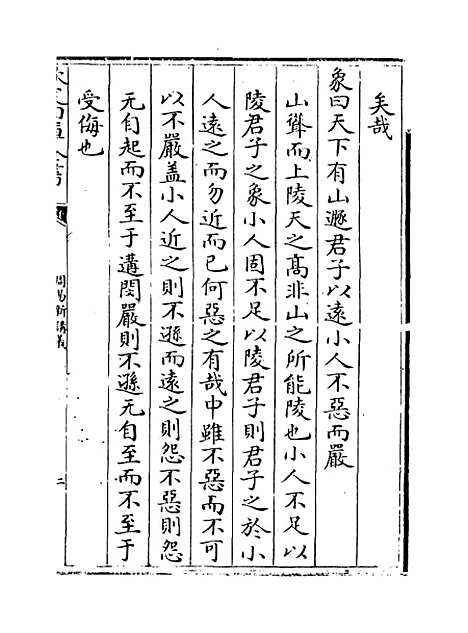 矣哉
象曰天下有山遯君子以遠小人不惡而嚴
山聳而上陵天之髙非山之所能陵也小人不足以
陵君子之象小人固不足以陵君子則君子之於小
人遠之而勿近而已何惡之有哉中雖不惡而不可
以不嚴盖小人近之則不遜而遠之則怨不惡則怨
无自起而不至于遘閔嚴則不遜无自至而不至于
受侮也
周易新講義
二